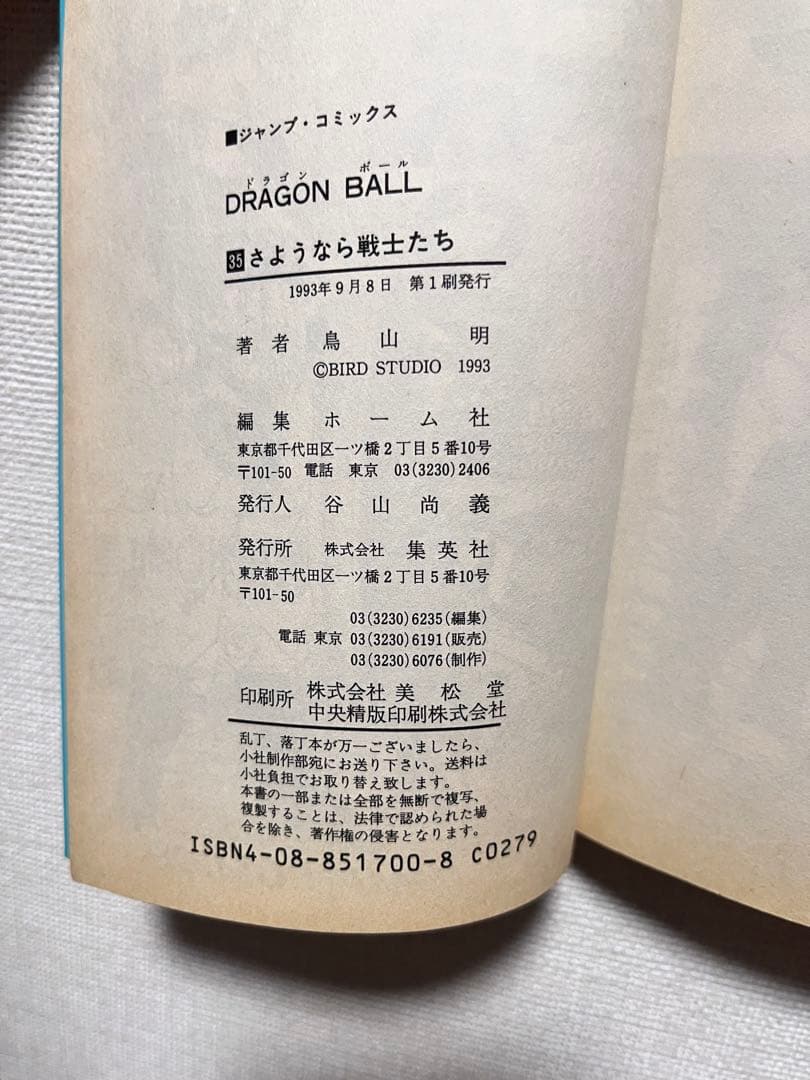 ■ジャンプ・コミックス
ドラゴン ボール
DRAGON BALL
35 さようなら戦士たち
1993年9月8日 第1刷発行
著者 鳥山明
©BIRD STUDIO 1993
編集 ホーム社
東京都千代田区一ツ橋2丁目5番10号
〒101-50 電話 東京 03(3230)2406
発行人 谷山尚義
発行所 株式会社 集英社
東京都千代田区一ツ橋2丁目5番10号
〒101-50
03(3230)6235(編集)
電話 東京 03(3230)6191(販売)
03(3230)6076(制作)
印刷所 株式会社 美松堂
中央精版印刷株式会社
乱丁、落丁本が万一ございましたら、
小社制作部宛にお送り下さい。送料は
小社負担でお取り替え致します。
本書の一部または全部を無断で複写、
複製することは、法律で認められた場
合を除き、著作権の侵害となります。
ISBN4-08-851700-8 C0279